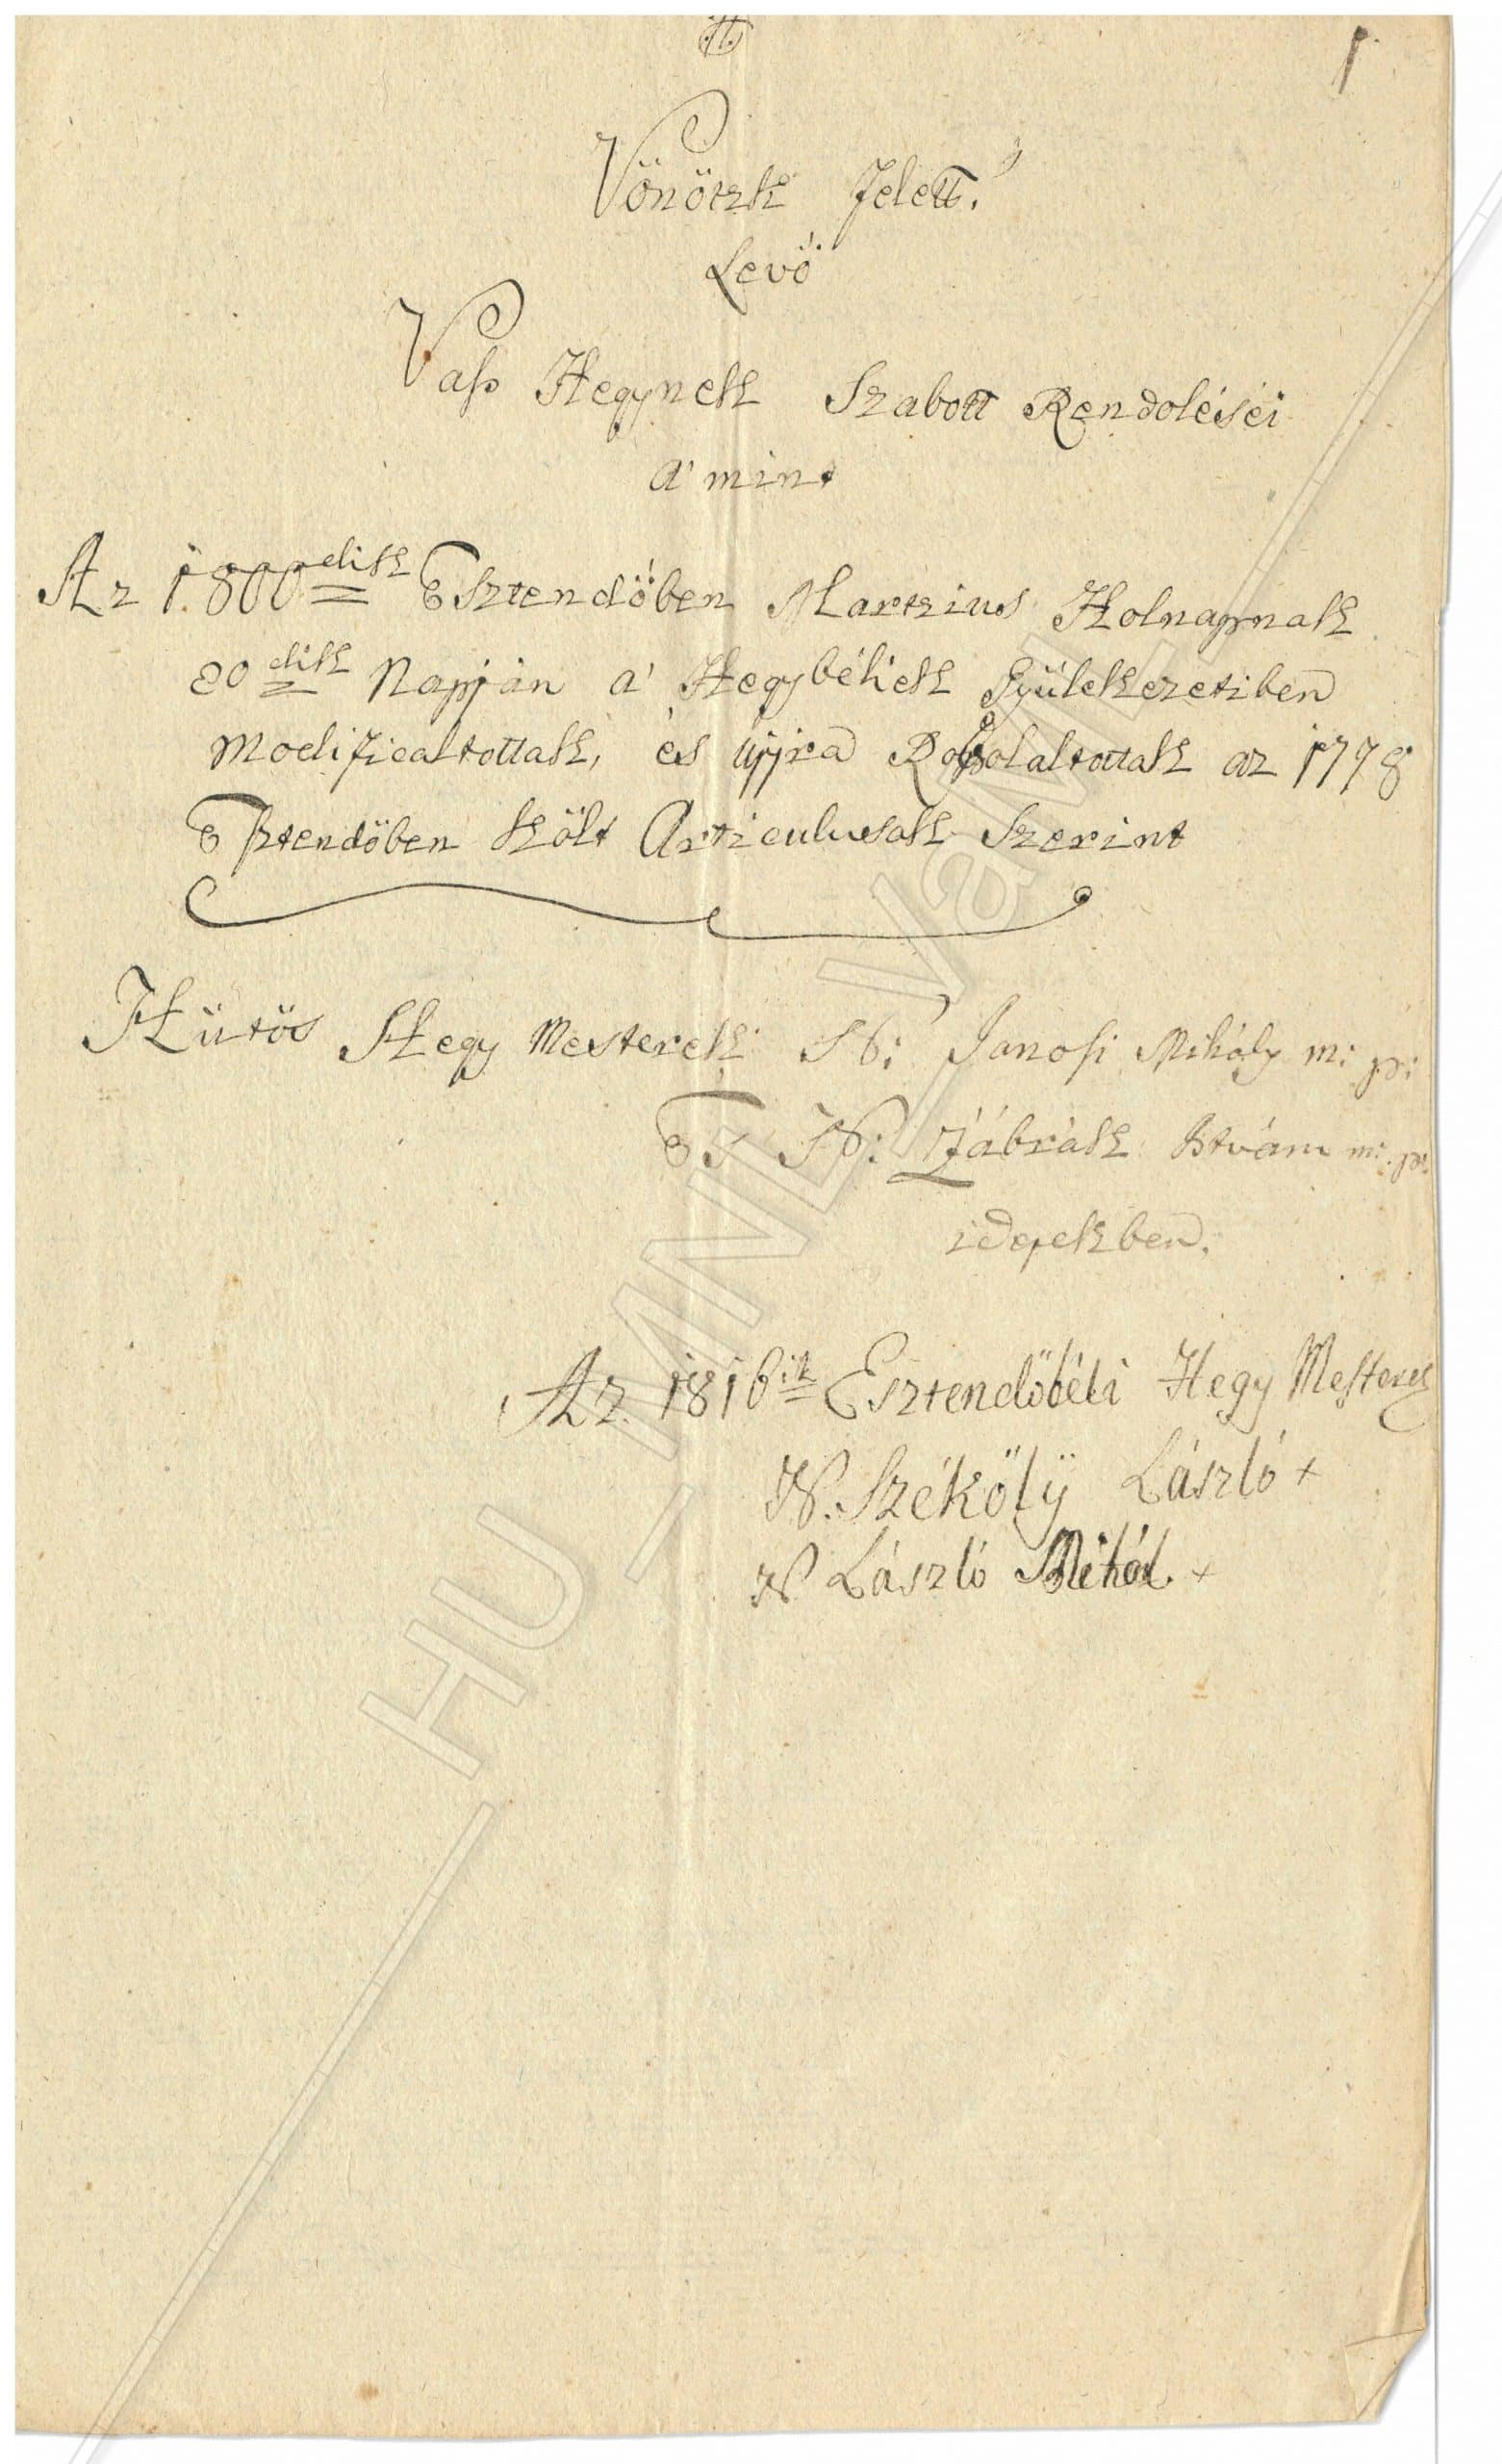 1.
Vönötzk felett
Levö
Vass Hegynek Szabott Rendolései
A' mint
Az 1800dik Esztendőben Martzius Holnapnak
20dik Napján a' Hegybéliek Gyülekezetiben
modificaltottak, és ujjra Roboláltottak az 1778
Esztendöben költ Articulusok szerint
Hütös Hegy Mesterek N: Janosi Mihály m: p:
Es N: Zábrák István m: p:
idejekben.
Az 1816ik Esztendőbéli Hegy Mesterek
N. Székőlÿ László +
N László Mihál +
HU_MNL_VaML